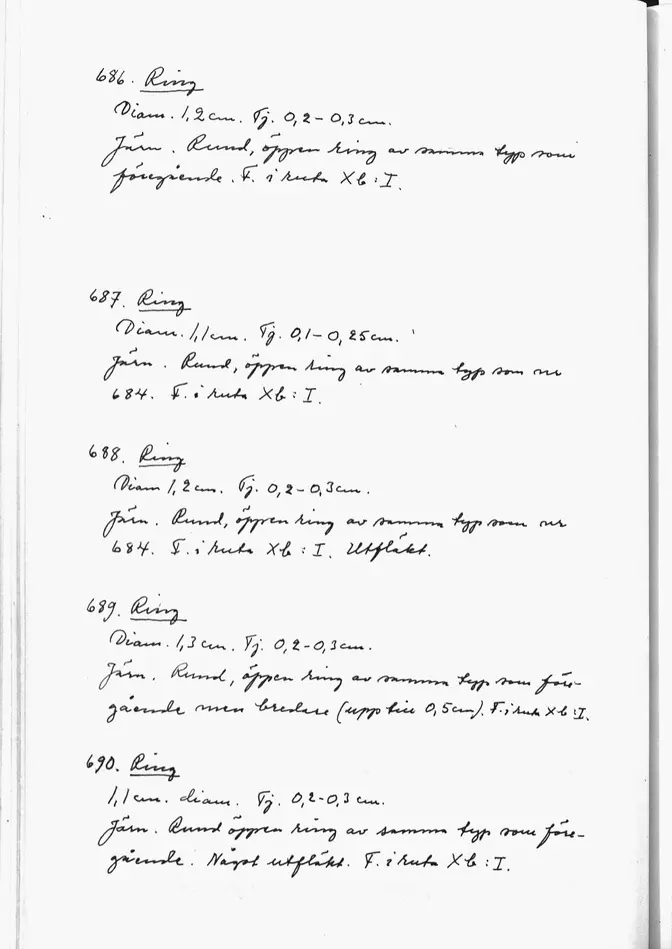 686. Ring
Diam. 1,2 cm. Tj. 0,2-0,3 cm.
Järn. Rund, öppen ring av samma typ som
föregående. F. i ruta Xb:I.
687. Ring
Diam. 1,1 cm. Tj. 0,1-0,25 cm.
Järn. Rund, öppen ring av samma typ som nr
684. F. i ruta Xb:I.
688. Ring
Diam 1,2 cm. Tj. 0,2-0,3 cm.
Järn. Rund, öppen ring av samma typ som nr
684. F. i ruta Xb:I. Utfläkt.
689. Ring
Diam. 1,3 cm. Tj. 0,2-0,3 cm.
Järn. Rund, öppen ring av samma typ som före-
gående men bredare (upp till 0,5 cm). F. i ruta Xb:I.
690. Ring
1,1 cm. diam. Tj. 0,2-0,3 cm.
Järn. Rund öppen ring av samma typ som före-
gående. Något utfläkt. F. i ruta Xb:I.